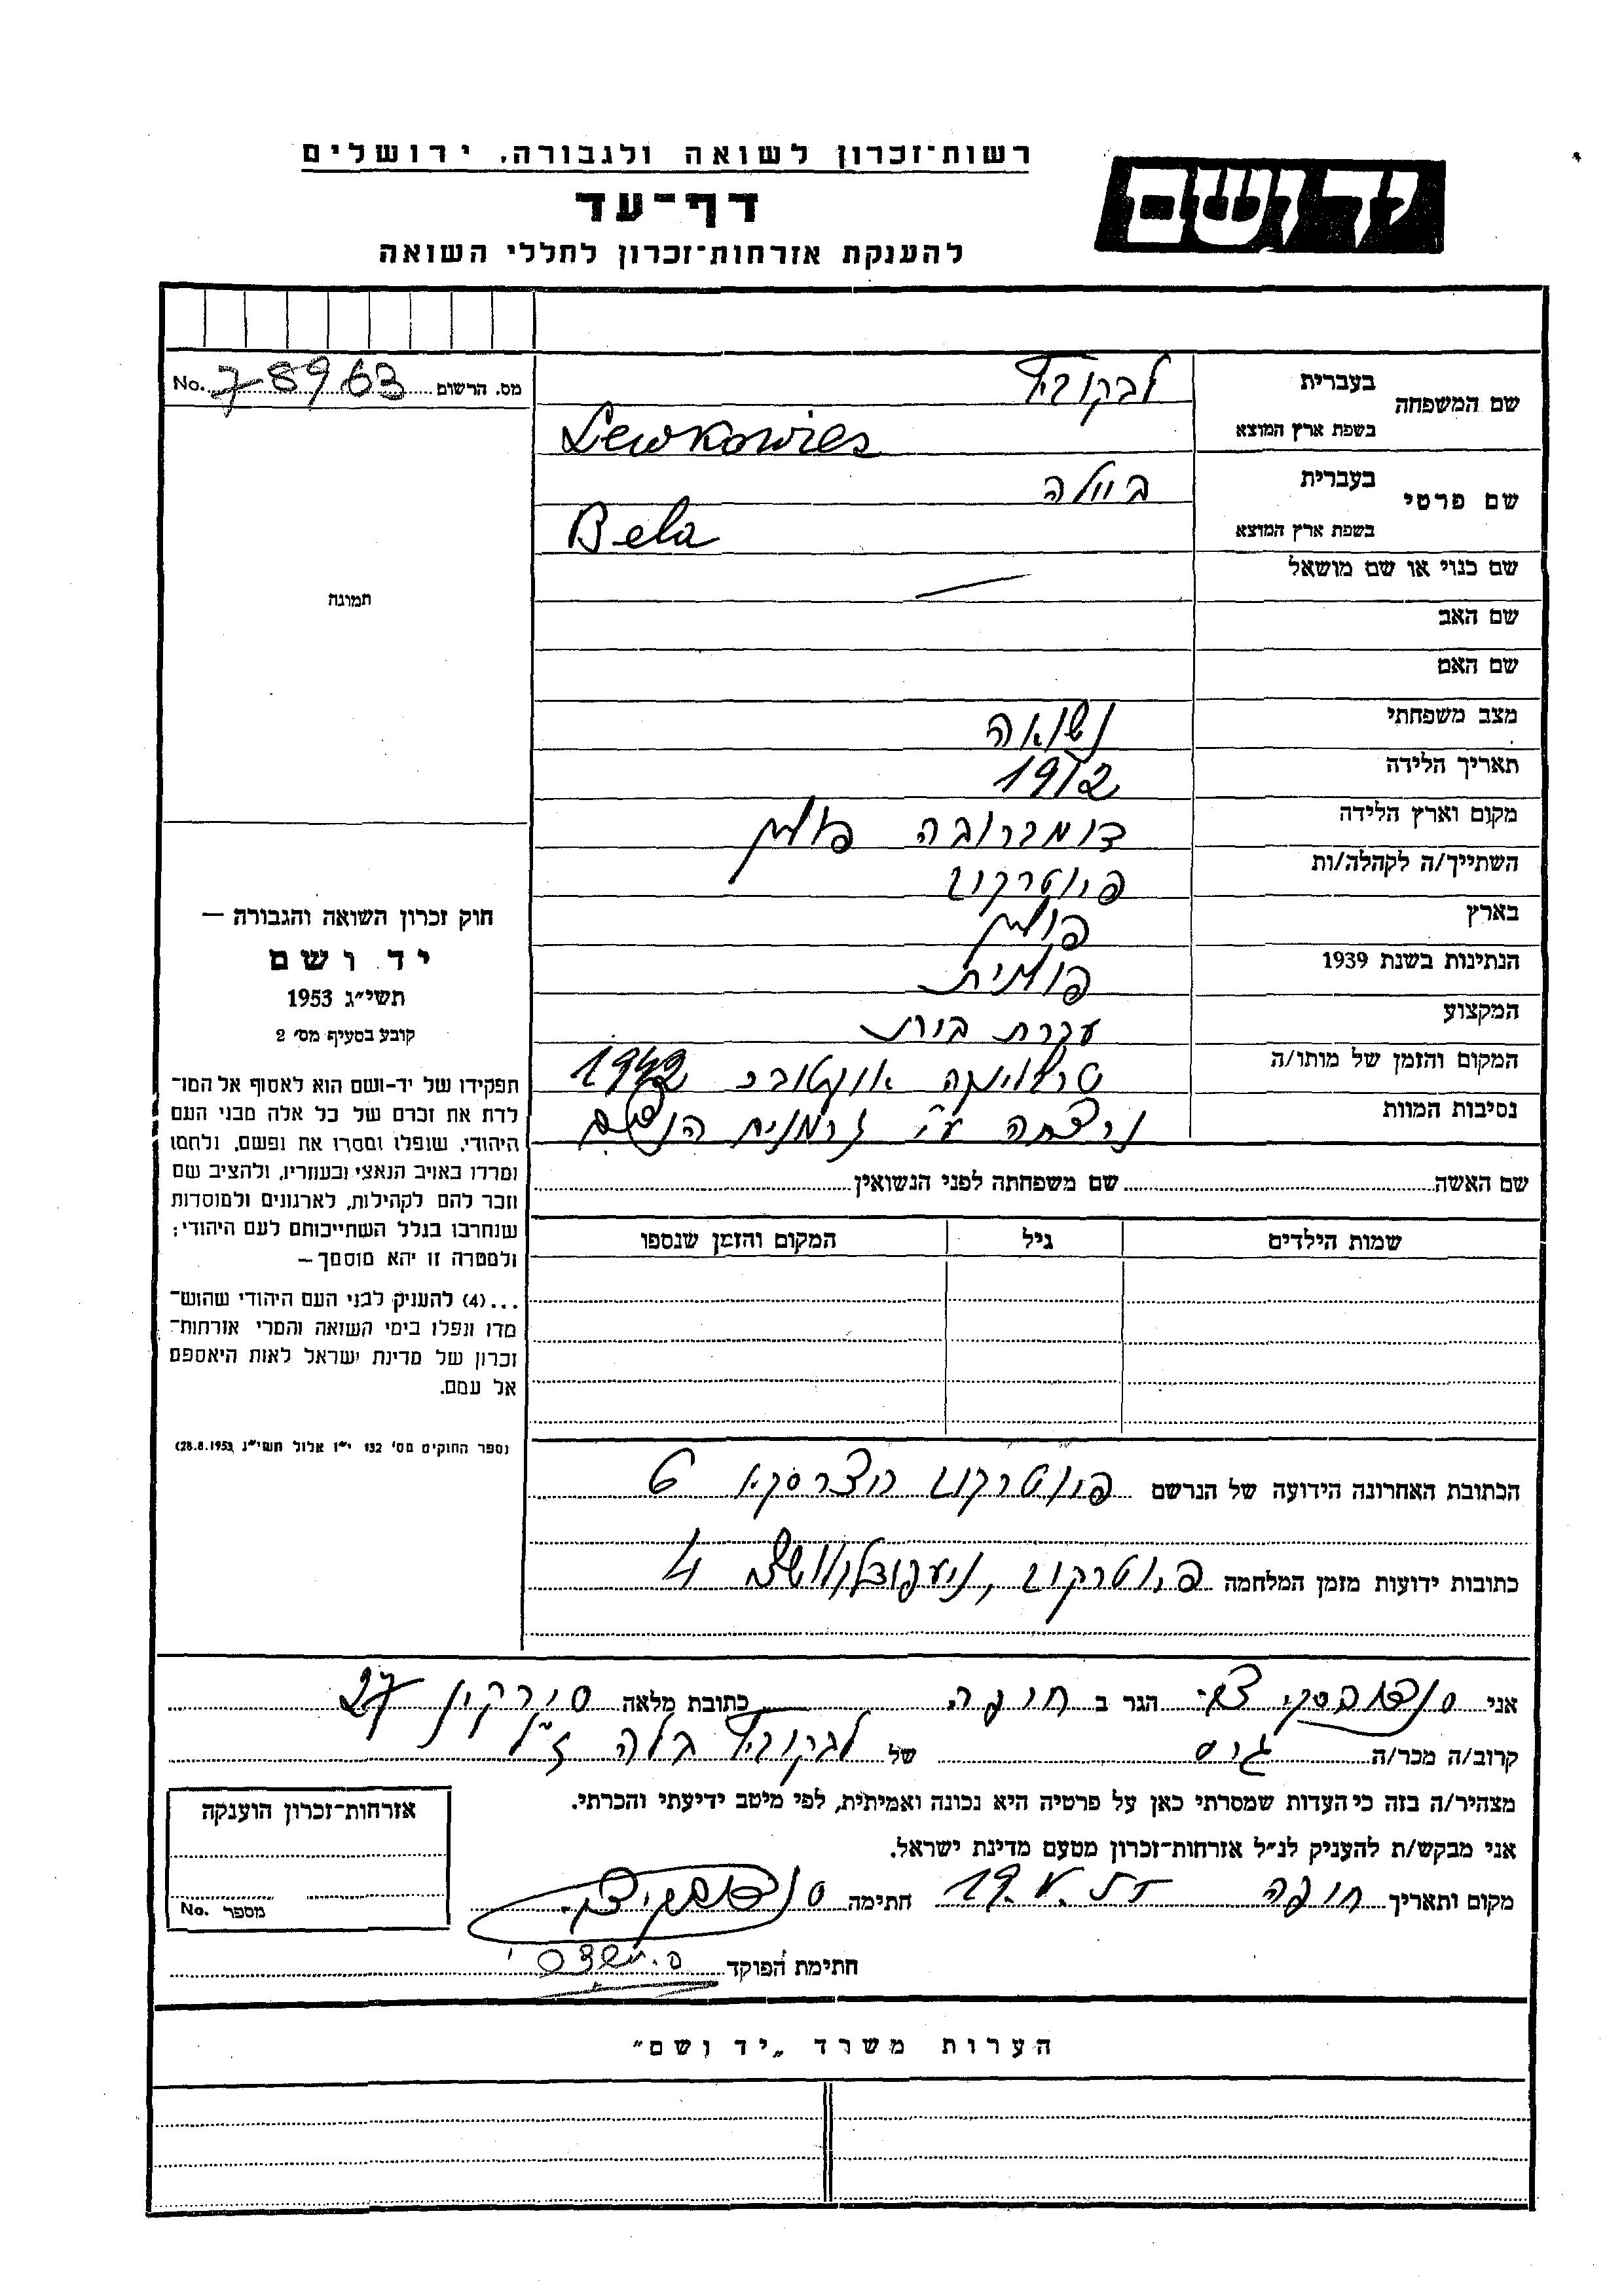 רשות־זכרון לשואה ולגבורה, ירושלים
יד ושם
דף־עד
להענקת אזרחות־זכרון לחללי השואה
מס. הרשום 78963 No.
שם המשפחה
בעברית לבקוביץ
בשפת ארץ המוצא Lewkowics
שם פרטי
בעברית ביילה
בשפת ארץ המוצא Bela
שם כנוי או שם מושאל —
שם האב
שם האם
מצב משפחתי נשואה
תאריך הלידה 1912
מקום וארץ הלידה דומברובה פולין
השתייך/ה לקהלה/ות פיוטרקוב
בארץ פולין
הנתינות בשנת 1939 פולנית
המקצוע עקרת בית
המקום והזמן של מותו/ה טרבלינקה אוקטובר 1942
נסיבות המוות נרצחה ע"י גרמנים
שם האשה שם משפחתה לפני הנשואין
שמות הילדים גיל המקום והזמן שנספו
תמונה
חוק זכרון השואה והגבורה —
יד ושם
תשי״ג 1953
קובע בסעיף מס׳ 2
תפקידו של יד-ושם הוא לאסוף אל המו־
לדת את זכרם של כל אלה מבני העם
היהודי, שנפלו ומסרו את נפשם, נלחמו
ומרדו באויב הנאצי ובעוזריו, ולהציב שם
וזכר להם לקהילות, לארגונים ולמוסדות
שנחרבו בגלל השתייכותם לעם היהודי;
ולמטרה זו יהא מוסמך —
...(4) להעניק לבני העם היהודי שהוש־
מדו ונפלו בימי השואה והמרי אזרחות־
זכרון של מדינת ישראל לאות היאספם
אל עמם.
(ספר החוקים מס׳ 132 י״ז אלול תשי״ג 28.8.1953)
הכתובת האחרונה הידועה של הנרשם פיוטרקוב
כתובות ידועות מזמן המלחמה פיוטרקוב, 4
אני צבי הגר ב חיפה כתובת מלאה סירקין 27
קרוב/ה מכר/ה גיס של לבקוביץ בלה ז"ל
מצהיר/ה בזה כי העדות שמסרתי כאן על פרטיה היא נכונה ואמיתית, לפי מיטב ידיעתי והכרתי.
אני מבקש/ת להעניק לנ״ל אזרחות־זכרון מטעם מדינת ישראל.
מקום ותאריך חיפה 19. חתימה
חתימת הפוקד
אזרחות־זכרון הוענקה
מספר No.
הערות משרד „יד ושם״